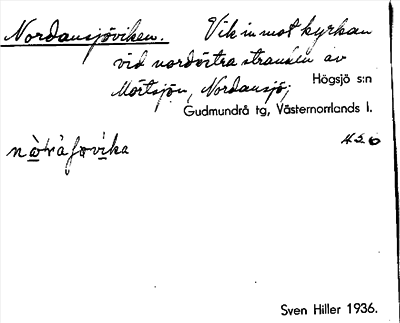 Nordansjöviken. Vik in mot kyrkan
vid nordöstra stranden av
Mörtsjön, Nordansjö,
Högsjö s:n
Gudmundrå tg, Västernorrlands l.
Sven Hiller 1936.